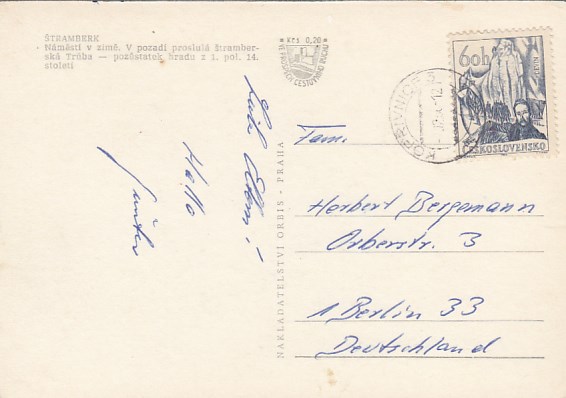 ŠTRAMBERK
Náměstí v zimě. V pozadí proslulá štramber-
ská Trúba — pozůstatek hradu z 1. pol. 14.
století
Kčs 0,20
VE PROSPĚCH CESTOVNÍHO RUCHU
60h
ČESKOSLOVENSKO
KOPŘIVNICE 3
Hallo
NAKLADATELSTVÍ ORBIS - PRAHA
Fam.
Herbert Bergemann
Orberstr. 3
1 Berlin 33
Deutschland